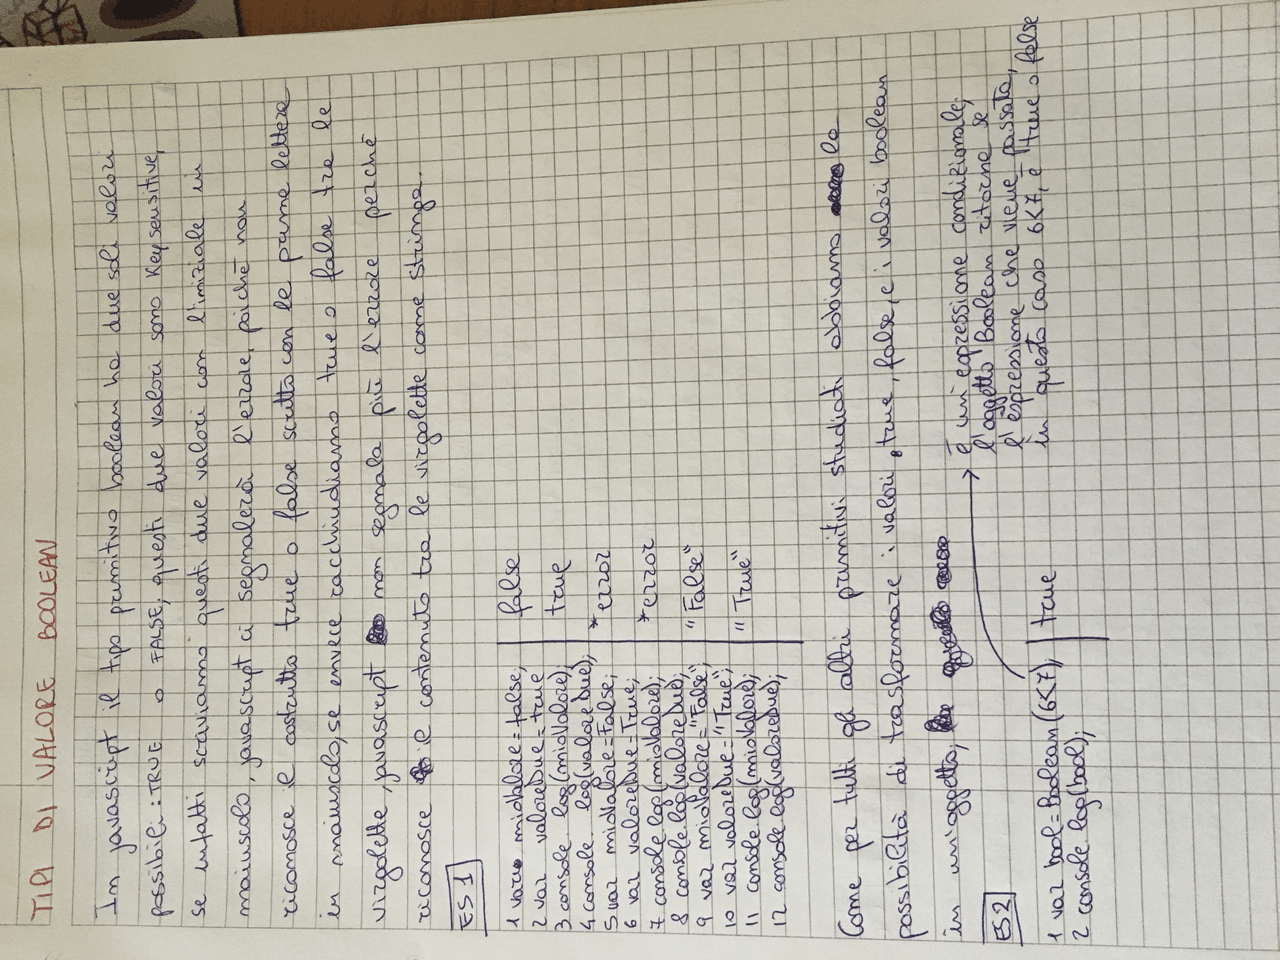 TIPI DI VALORE BOOLEAN
In javascript il tipo primitivo boolean ha due soli valori
possibili: TRUE o FALSE, questi due valori sono Key sensitive,
se infatti scriviamo questi due valori con l'iniziale in
maiuscolo, javascript ci segnalerà l'errore, poiché non
riconosce il costrutto true o false scritto con le prime lettere
in maiuscolo, se invece racchiudiamo true o false tra le
virgolette, javascript non segnala più l'errore perché
riconosce il contenuto tra le virgolette come stringa.
ES 1
1 var mioValore=false; false
2 var valoreDue=true true
3 console log(mioValore); *error
4 console. log(valoreDue); *error
5 var mioValore=False; "False"
6 var valoreDue=True; "True"
7 console.log(mioValore);
8 console log(valoreDue);
9 var mioValore="False";
10 var valoreDue="True";
11 console.log(mioValore);
12 console.log(valoreDue);
Come per tutti gli altri primitivi studiati abbiamo la
possibilità di trasformare i valori, true, false, e i valori boolean
in un oggetto,
è un'espressione condizionale,
l'oggetto Boolean ritorna se,
l'espressione che viene passata,
in questo caso 6<7, è "true o false
ES 2
1 var bool=Boolean(6<7); true
2 console log(bool);